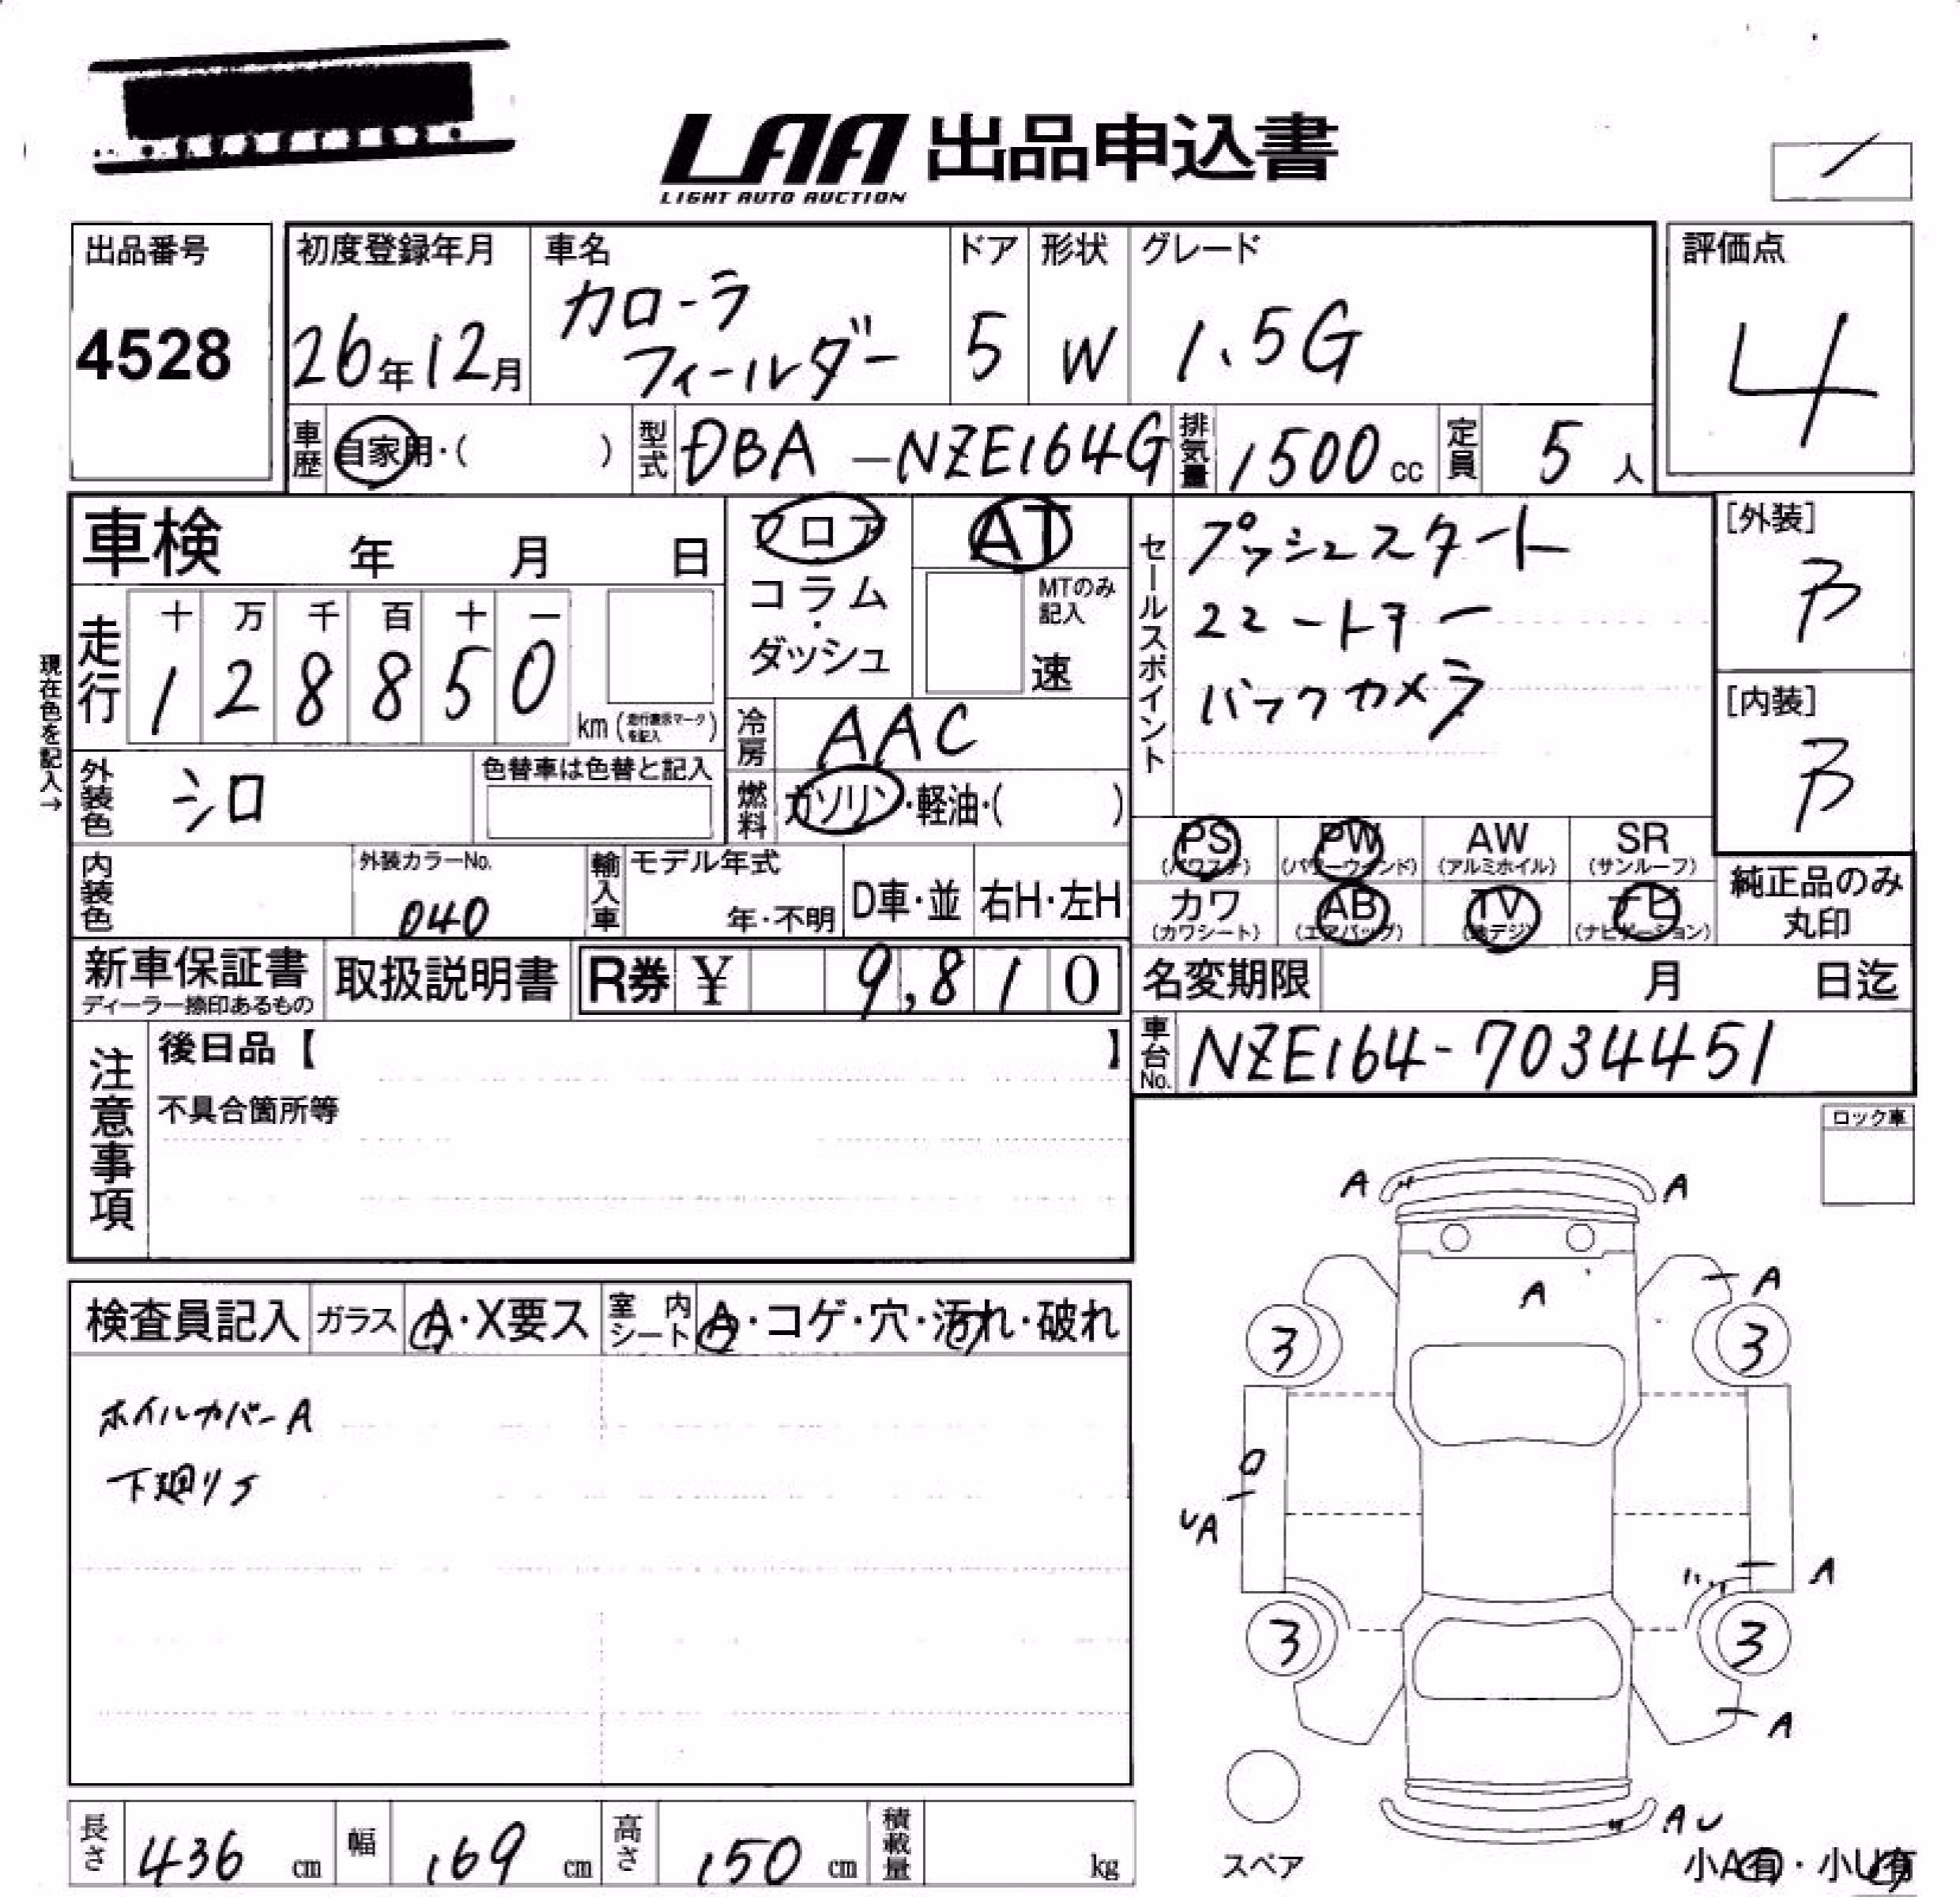 LAA 出品申込書
LIGHT AUTO AUCTION
出品番号
4528
初度登録年月
26年12月
車名
カローラ
フィールダー
ドア
5
形状
W
グレード
1.5G
評価点
4
車歴
自家用・( )
型式
DBA-NZE164G
排気量
1500cc
定員
5人
車検 年 月 日
走行
十 万 千 百 十 一
1 2 8 8 5 0
km (走行表示マークを記入)
現在色を記入→
フロア
コラム
・
ダッシュ
AT
MTのみ
記入
速
冷房
AAC
燃料
ガソリン・軽油・( )
外装色
シロ
色替車は色替と記入
内装色
外装カラーNo.
040
輸入車
モデル年式
年・不明
D車・並
右H・左H
セールスポイント
プッシュスタート
バックカメラ
[外装]
B
[内装]
B
PS
(パワステ)
PW
(パワーウインド)
AW
(アルミホイル)
SR
(サンルーフ)
カワ
(カワシート)
AB
(エアバッグ)
TV
(地デジ)
ナビ
(ナビゲーション)
純正品のみ
丸印
新車保証書
ディーラー捺印あるもの
取扱説明書
R券 ¥ 9,810
名変期限 月 日迄
車台No.
NZE164-7034451
注意事項
後日品【 】
不具合箇所等
ロック車
検査員記入
ガラス
A・X要ス
室内シート
A・コゲ・穴・汚れ・破れ
ホイルカバーA
下廻りS
A A
A
A
3 3
UA
A
3 3
A
AU
スペア
小A有・小U有
長さ 436 cm
幅 169 cm
高さ 150 cm
積載量 kg